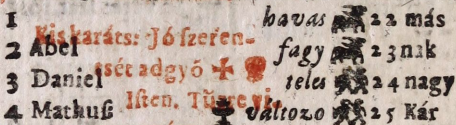 1 Kis karáts: Jó szeren- havas 22 más
2 Abel tsét adgyō fagy 23 nak
3 Daniel Isten. teles 24 nagy
4 Mathuß változo 25 Kár